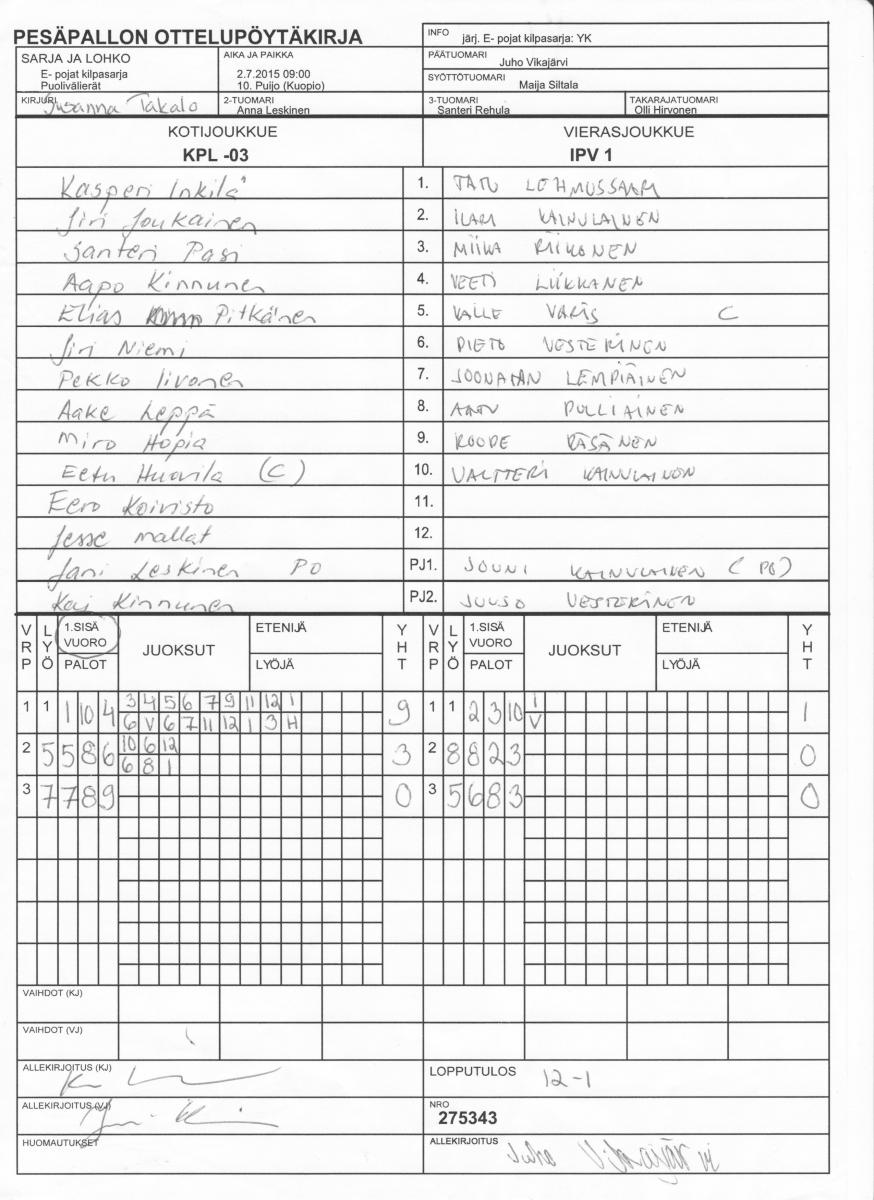 PESÄPALLON OTTELUPÖYTÄKIRJA
INFO järj. E- pojat kilpasarja: YK
SARJA JA LOHKO
E- pojat kilpasarja
Puolivälierät
AIKA JA PAIKKA
2.7.2015 09:00
10. Puijo (Kuopio)
PÄÄTUOMARI
Juho Vikajärvi
SYÖTTÖTUOMARI
Maija Siltala
KIRJURI Susanna Takalo
2-TUOMARI
Anna Leskinen
3-TUOMARI
Santeri Rehula
TAKARAJATUOMARI
Olli Hirvonen
KOTIJOUKKUE VIERASJOUKKUE
KPL -03 IPV 1
Kasperi Inkilä 1. TATU LOHMUSSAARI
Jiri Joukainen 2. ILARI KAINULAINEN
Santeri Pasi 3. MIIKA RIIKONEN
Aapo Kinnunen 4. VEETI LIIKKANEN
Elias Pitkänen 5. KALLE VARIS C
Jiri Niemi 6. PIETU VESTERINEN
Pekko Iivonen 7. JOONATAN LEMPIÄINEN
Aake Leppä 8. AATU PULLIAINEN
Miro Hopia 9. ROOPE RÄSÄNEN
Eetu Huovila (C) 10. VALTTERI KAINULAINEN
Eero Koivisto 11.
Jesse Mallat 12.
Jani Leskinen PO PJ1. JOUNI KAINULAINEN (PO)
Kai Kinnunen PJ2. JUUSO VESTERINEN
VRP LYÖ 1.SISÄ VUORO PALOT JUOKSUT ETENIJÄ LYÖJÄ YHT VRP LYÖ 1.SISÄ VUORO PALOT JUOKSUT ETENIJÄ LYÖJÄ YHT
1 1 1 10 4 3 4 5 6 7 9 11 12 1 9 1 1 2 3 10 1 1
6 V 6 7 11 12 1 3 H V
2 5 5 8 6 10 6 12 3 2 8 8 2 3 0
6 8 1
3 7 7 8 9 0 3 5 6 8 3 0
VAIHDOT (KJ)
VAIHDOT (VJ)
ALLEKIRJOITUS (KJ)
LOPPUTULOS 12-1
ALLEKIRJOITUS (VJ)
NRO
275343
HUOMAUTUKSET
ALLEKIRJOITUS Juho Vikajärvi